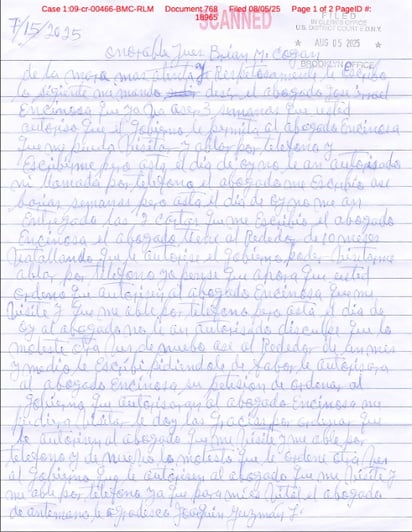 Case 1:09-cr-00466-BMC-RLM Document 768 Filed 08/05/25 Page 1 of 2 PageID #:
18965
SCANNED
FILED
IN CLERK'S OFFICE
U.S. DISTRICT COURT E.D.N.Y.
★ AUG 05 2025 ★
BROOKLYN OFFICE
7/15/2025
onorable Juez Brian M. Cogan
de la manera mas atenta y Respetuosamente le Escribo
lo sigiente me mando desir el abogado Jose Israel
Encinosa que ya ase 3 semanas que usted
autoriso que el Gobierno le permita al abogado Encinosa
que me pueda visitar y ablar por telefono y
Escribirme pero asta el dia de oy no le an autorisado
ni llamada por telefono el abogado me Escribio ase
barias semanas pero asta el dia de oy no me an
Entregado las 2 cartas que me Escribio el abogado
Encinosa el abogado tiene al Rededor de 10 meses
batallando que le autorise el Gobierno poder visitarme
ablar por telefono yo pense que ahora que usted
ordeno que autorisen al abogado Encinosa que me
visite y que me able por telefono pero asta el dia de
oy al abogado no le an autorisado disculpe que lo
molesti otra vez de nuebo ase al Rededor de un mes
y medio le Escribi pidiendole de fabor le autorisara
al abogado Encinosa su petision de ordenar al
Gobierno que autorisaran al abogado Encinosa me
pudiera visitar le doy las Gracias por ordenar que
le autorisen al abogado que me visite y me able por
telefono y de nuebo lo molesto que le ordene otra vez
al Gobierno que le autorisen al abogado que me visite y
me able por telefono ya que para mi es vital el abogado
de antemano le agradesco Joaquin Guzman L.